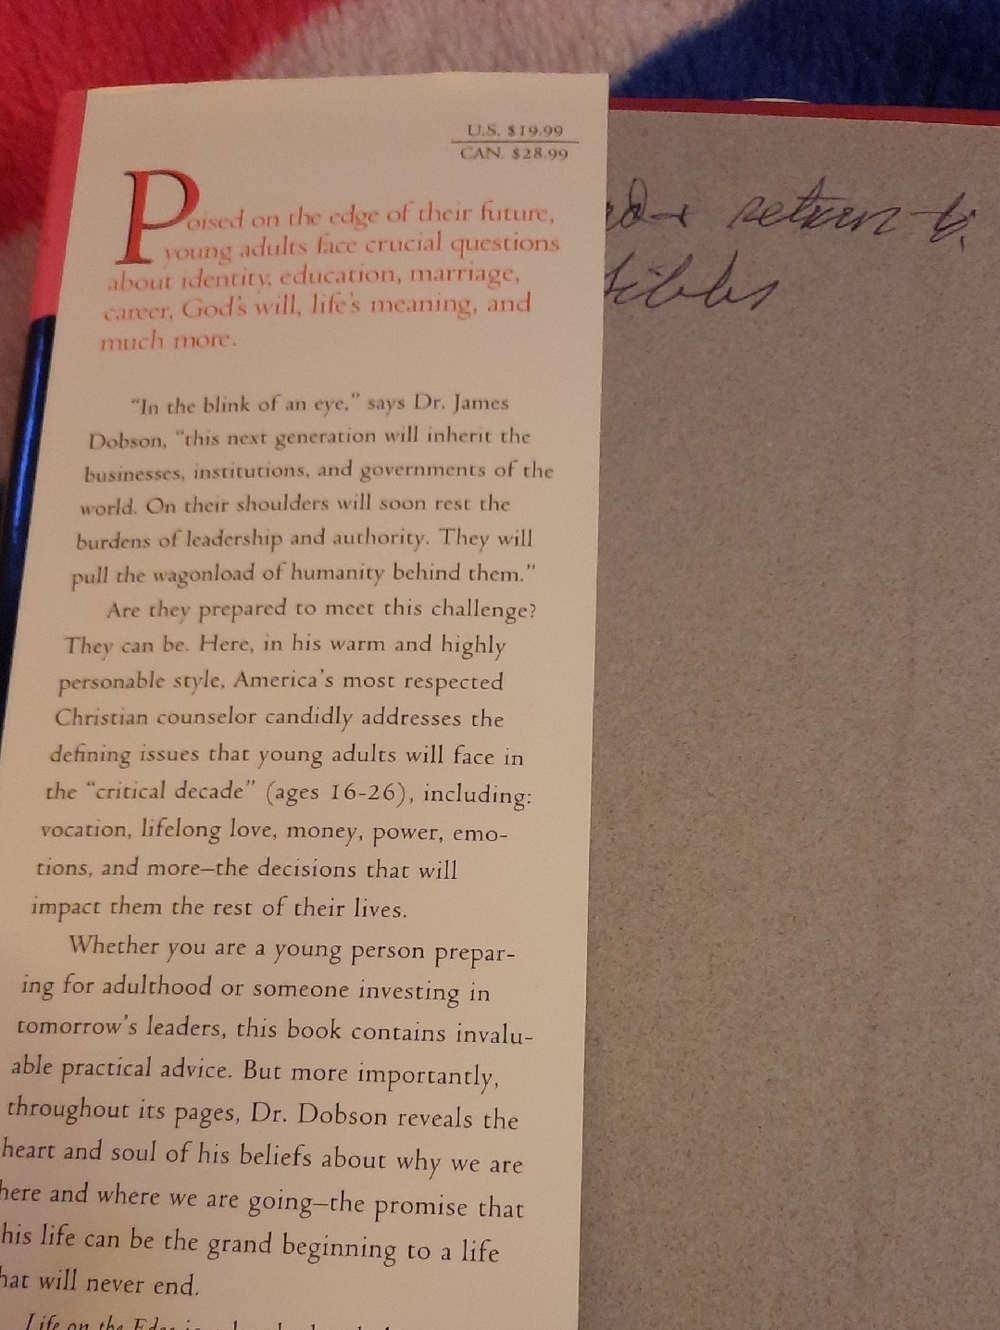 U.S. $19.99
CAN. $28.99
Poised on the edge of their future,
young adults face crucial questions
about identity, education, marriage,
career, God's will, life's meaning, and
much more.
"In the blink of an eye," says Dr. James
Dobson, "this next generation will inherit the
businesses, institutions, and governments of the
world. On their shoulders will soon rest the
burdens of leadership and authority. They will
pull the wagonload of humanity behind them."
Are they prepared to meet this challenge?
They can be. Here, in his warm and highly
personable style, America's most respected
Christian counselor candidly addresses the
defining issues that young adults will face in
the "critical decade" (ages 16-26), including:
vocation, lifelong love, money, power, emo-
tions, and more—the decisions that will
impact them the rest of their lives.
Whether you are a young person prepar-
ing for adulthood or someone investing in
tomorrow's leaders, this book contains invalu-
able practical advice. But more importantly,
throughout its pages, Dr. Dobson reveals the
heart and soul of his beliefs about why we are
here and where we are going—the promise that
his life can be the grand beginning to a life
hat will never end.
Life on the Edge
return to